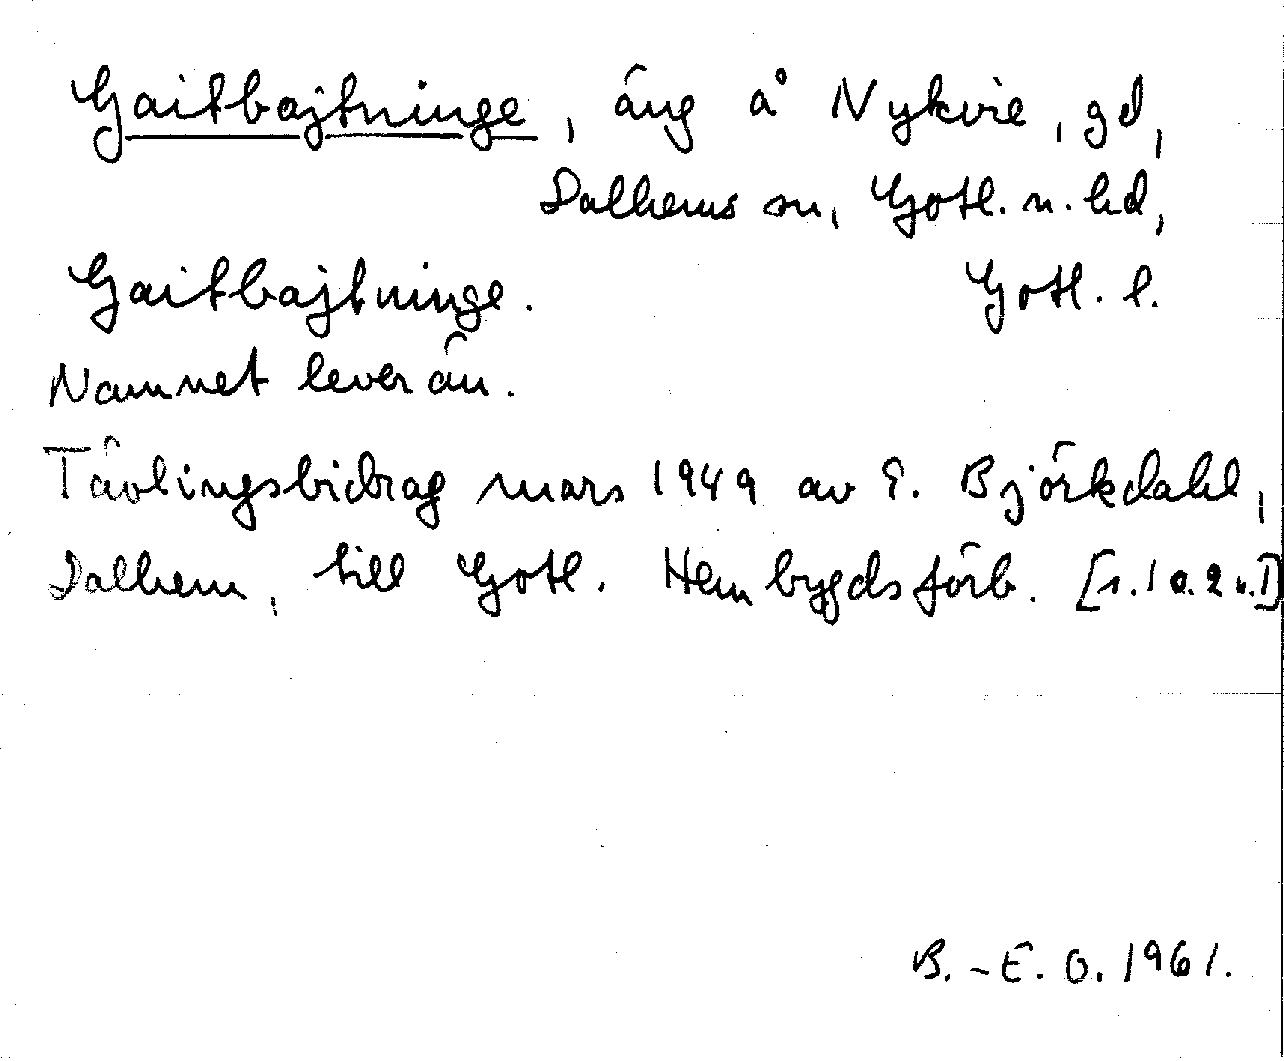 Gaitbajtninge, äng å Nykvie, gd,
Dalhems sn, Gotl. n. hd,
Gaitbajtninge. Gotl. l.
Namnet lever än.
Tävlingsbidrag mars 1949 av E. Björkdahl,
Dalhem, till Gotl. Hembygdsförb. [s. 1 o. 2 v. I]
B.-E. O. 1961.